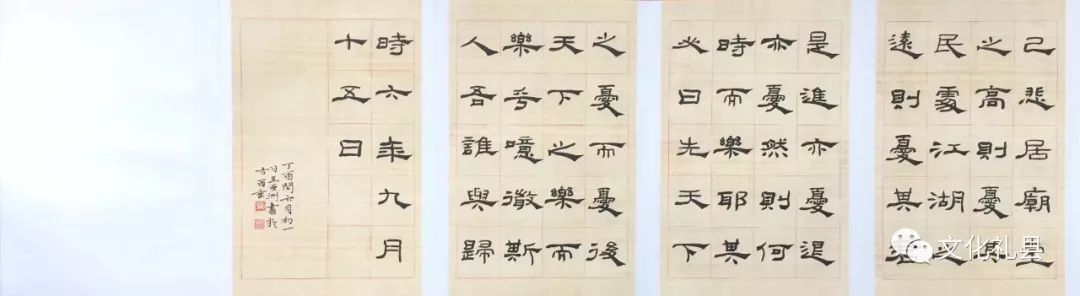 己悲居廟堂
之高則憂其
民處江湖之
遠則憂其君
是進亦憂退
亦憂然則何
時而樂耶其
必曰先天下
之憂而憂後
天下之樂而
樂乎噫微斯
人吾誰與歸
時六年九月
十五日
丁酉閏六月初一
日王亞洲書於
文化礼县